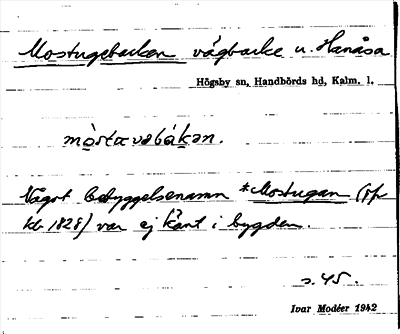 Mostugebacken vägbacke u. Hanåsa
Högsby sn, Handbörds hd, Kalm. l.
Något bebyggelsenamn *Mostugan (jfr
kb 1828) var ej känt i bygden.
s. 45.
Ivar Modéer 1942